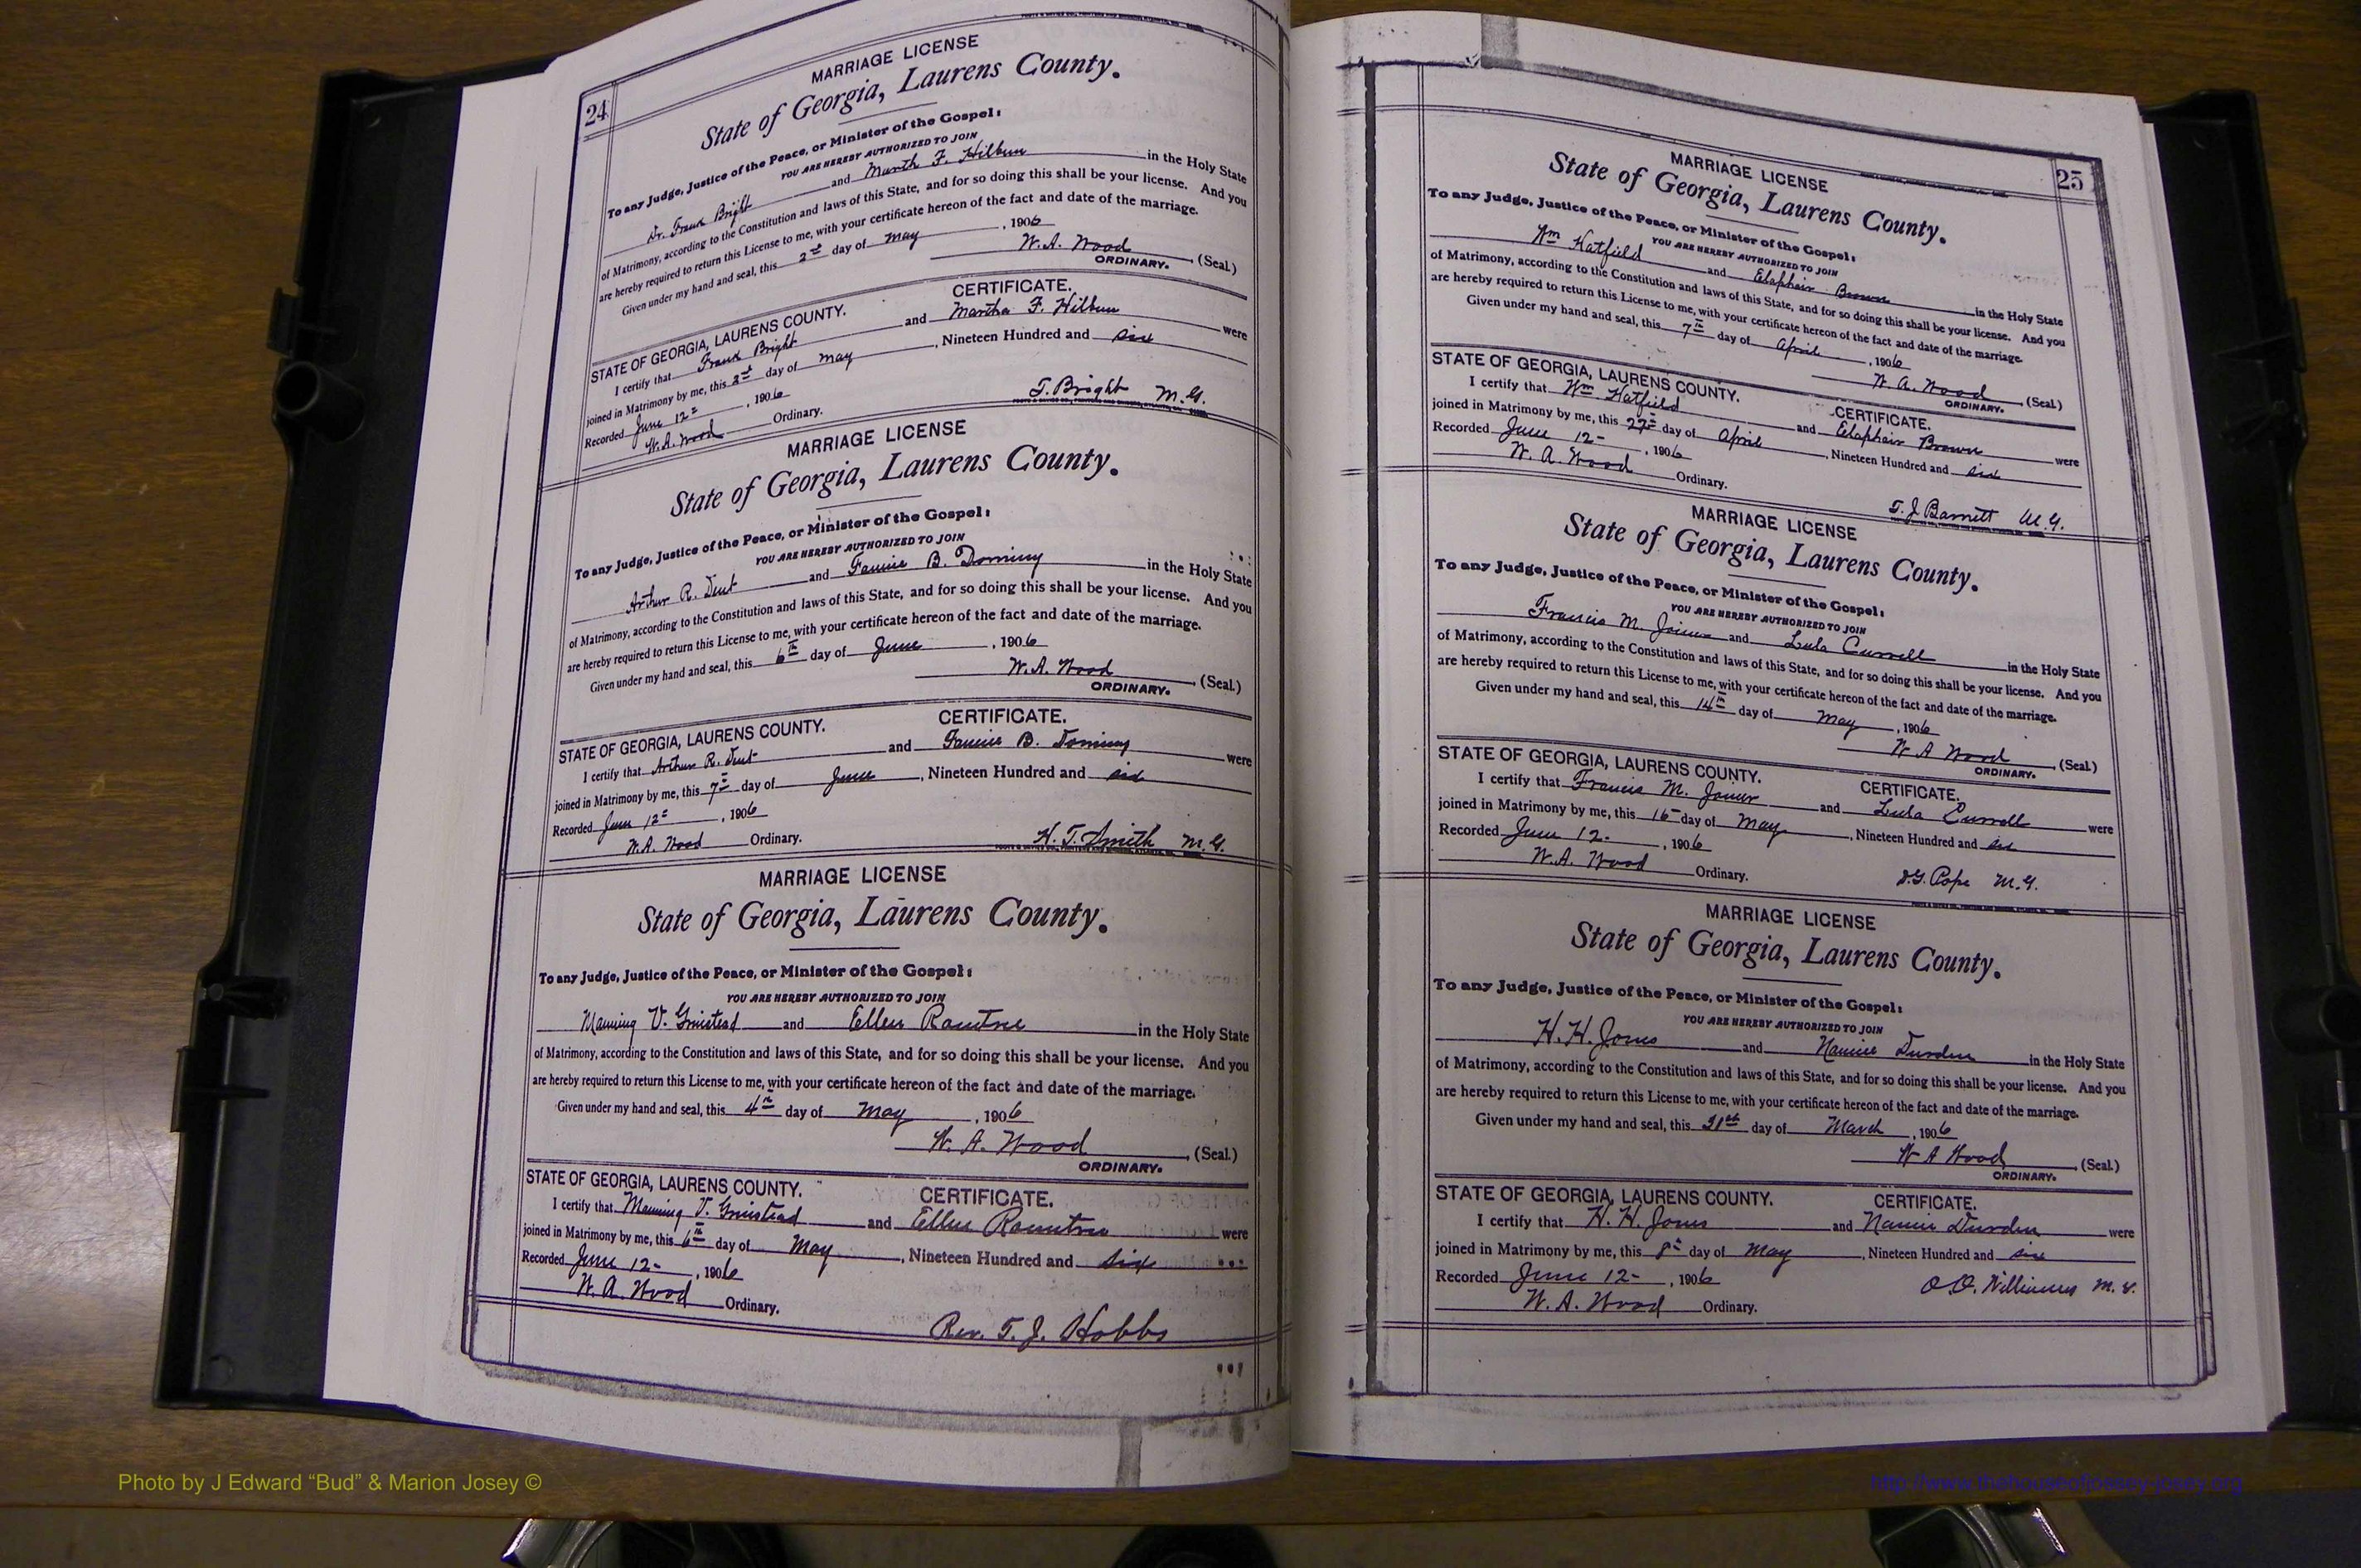 24
MARRIAGE LICENSE
State of Georgia, Laurens County.
To any Judge, Justice of the Peace, or Minister of the Gospel:
YOU ARE HEREBY AUTHORIZED TO JOIN
Dr. Frank Bright and F. Hilbun in the Holy State
of Matrimony, according to the Constitution and laws of this State, and for so doing this shall be your license. And you
are hereby required to return this License to me, with your certificate hereon of the fact and date of the marriage.
Given under my hand and seal, this 2nd day of May, 1906
W. A. Wood (Seal.)
ORDINARY.
STATE OF GEORGIA, LAURENS COUNTY. CERTIFICATE.
I certify that Frank Bright and Martha F. Hilbun were
joined in Matrimony by me, this 2nd day of May, Nineteen Hundred and six
Recorded June 12-, 1906
W. A. Wood Ordinary.
T. Bright M.G.
MARRIAGE LICENSE
State of Georgia, Laurens County.
To any Judge, Justice of the Peace, or Minister of the Gospel:
YOU ARE HEREBY AUTHORIZED TO JOIN
Arthur R. Dent and Fannie B. Dominy in the Holy State
of Matrimony, according to the Constitution and laws of this State, and for so doing this shall be your license. And you
are hereby required to return this License to me, with your certificate hereon of the fact and date of the marriage.
Given under my hand and seal, this 6th day of June, 1906
W. A. Wood (Seal.)
ORDINARY.
STATE OF GEORGIA, LAURENS COUNTY. CERTIFICATE.
I certify that Arthur R. Dent and Fannie B. Dominy were
joined in Matrimony by me, this 7th day of June, Nineteen Hundred and six
Recorded June 12-, 1906
W. A. Wood Ordinary.
H. T. Smith M.G.
MARRIAGE LICENSE
State of Georgia, Laurens County.
To any Judge, Justice of the Peace, or Minister of the Gospel:
YOU ARE HEREBY AUTHORIZED TO JOIN
Manning V. and Ellen Rountree in the Holy State
of Matrimony, according to the Constitution and laws of this State, and for so doing this shall be your license. And you
are hereby required to return this License to me, with your certificate hereon of the fact and date of the marriage.
Given under my hand and seal, this 4th day of May, 1906
W. A. Wood (Seal.)
ORDINARY.
STATE OF GEORGIA, LAURENS COUNTY. CERTIFICATE.
I certify that Manning V. and Ellen Rountree were
joined in Matrimony by me, this 6th day of May, Nineteen Hundred and six
Recorded June 12-, 1906
W. A. Wood Ordinary.
Rev. T. J. Hobbs
25
MARRIAGE LICENSE
State of Georgia, Laurens County.
To any Judge, Justice of the Peace, or Minister of the Gospel:
YOU ARE HEREBY AUTHORIZED TO JOIN
Wm Hatfield and Elaphair Brown in the Holy State
of Matrimony, according to the Constitution and laws of this State, and for so doing this shall be your license. And you
are hereby required to return this License to me, with your certificate hereon of the fact and date of the marriage.
Given under my hand and seal, this 7th day of April, 1906
W. A. Wood (Seal.)
ORDINARY.
STATE OF GEORGIA, LAURENS COUNTY. CERTIFICATE.
I certify that Wm Hatfield and Elaphair Brown were
joined in Matrimony by me, this 22nd day of April, Nineteen Hundred and six
Recorded June 12-, 1906
W. A. Wood Ordinary.
T. J. Barnett M.G.
MARRIAGE LICENSE
State of Georgia, Laurens County.
To any Judge, Justice of the Peace, or Minister of the Gospel:
YOU ARE HEREBY AUTHORIZED TO JOIN
Francis M. Joiner and Lula Currell in the Holy State
of Matrimony, according to the Constitution and laws of this State, and for so doing this shall be your license. And you
are hereby required to return this License to me, with your certificate hereon of the fact and date of the marriage.
Given under my hand and seal, this 14th day of May, 1906
W A Wood (Seal.)
ORDINARY.
STATE OF GEORGIA, LAURENS COUNTY. CERTIFICATE.
I certify that Francis M. Joiner and Lula Currell were
joined in Matrimony by me, this 16- day of May, Nineteen Hundred and six
Recorded June 12-, 1906
W. A. Wood Ordinary.
Pope M.G.
MARRIAGE LICENSE
State of Georgia, Laurens County.
To any Judge, Justice of the Peace, or Minister of the Gospel:
YOU ARE HEREBY AUTHORIZED TO JOIN
H. H. Jones and Nannie Durden in the Holy State
of Matrimony, according to the Constitution and laws of this State, and for so doing this shall be your license. And you
are hereby required to return this License to me, with your certificate hereon of the fact and date of the marriage.
Given under my hand and seal, this 31st day of March, 1906
W A Wood (Seal.)
ORDINARY.
STATE OF GEORGIA, LAURENS COUNTY. CERTIFICATE.
I certify that H. H. Jones and Nannie Durden were
joined in Matrimony by me, this 8th day of May, Nineteen Hundred and six
Recorded June 12-, 1906
W. A. Wood Ordinary.
O. O. Williams M.G.
Photo by J Edward “Bud” & Marion Josey ©
http://www.thehouseofjossey-josey.org